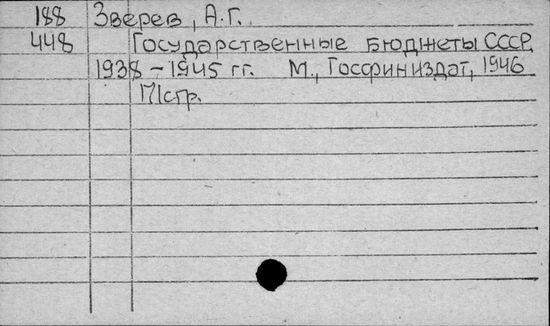 188 Зверев, А.Г.
448 Государственные бюджеты СССР
1938-1945 гг. М., Госфиниздат, 1946
171стр.